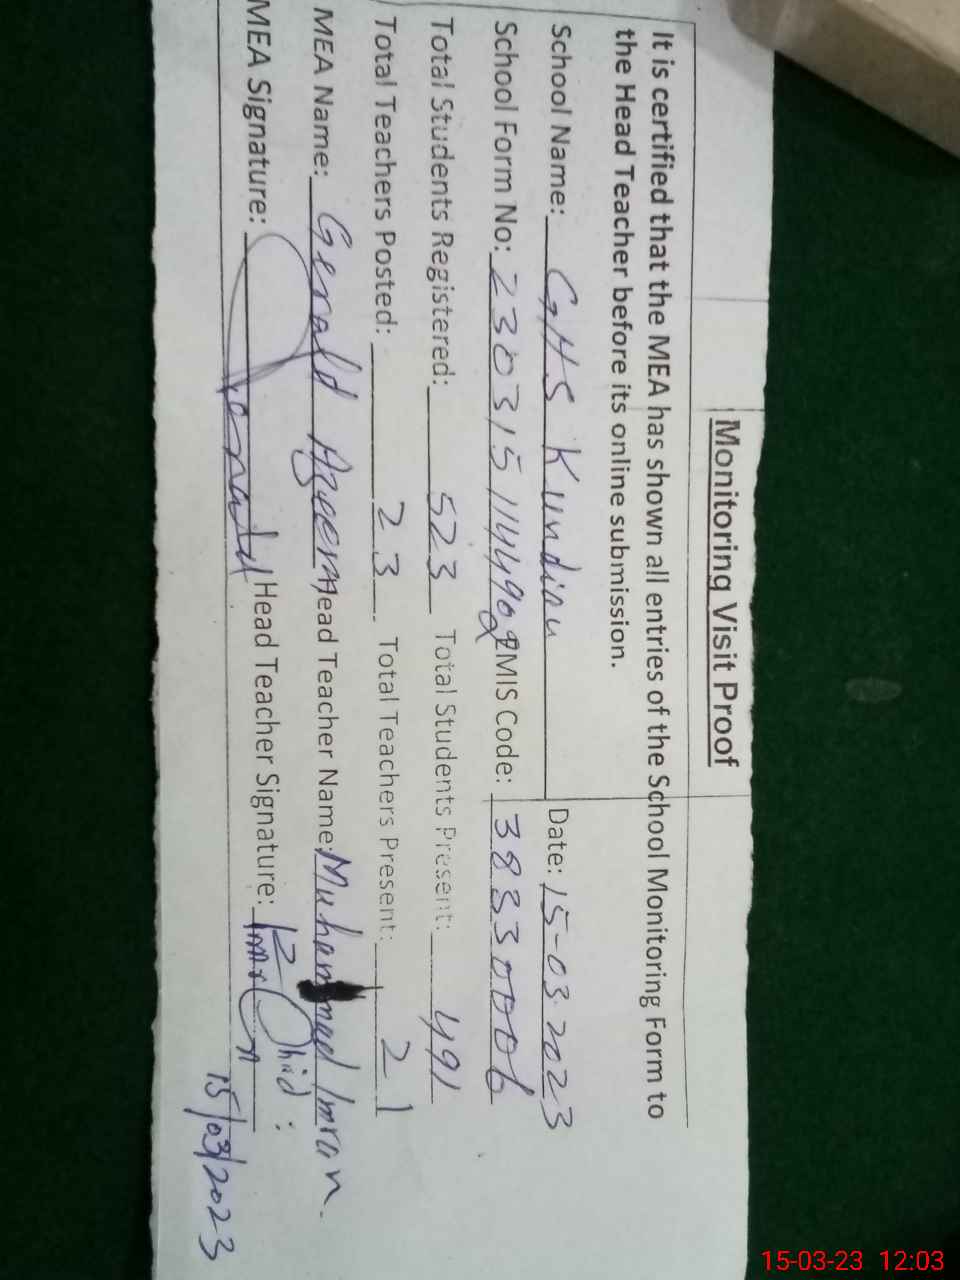 Monitoring Visit Proof
It is certified that the MEA has shown all entries of the School Monitoring Form to
the Head Teacher before its online submission.
School Name: GHS Kundian Date: 15-03-2023
School Form No: EMIS Code: 38330006
Total Students Registered: 523 Total Students Present: 491
Total Teachers Posted: 23 Total Teachers Present: 21
MEA Name: Gerald Azeem Head Teacher Name: Muhammad Imran.
MEA Signature: Head Teacher Signature:
15/03/2023
15-03-23 12:03